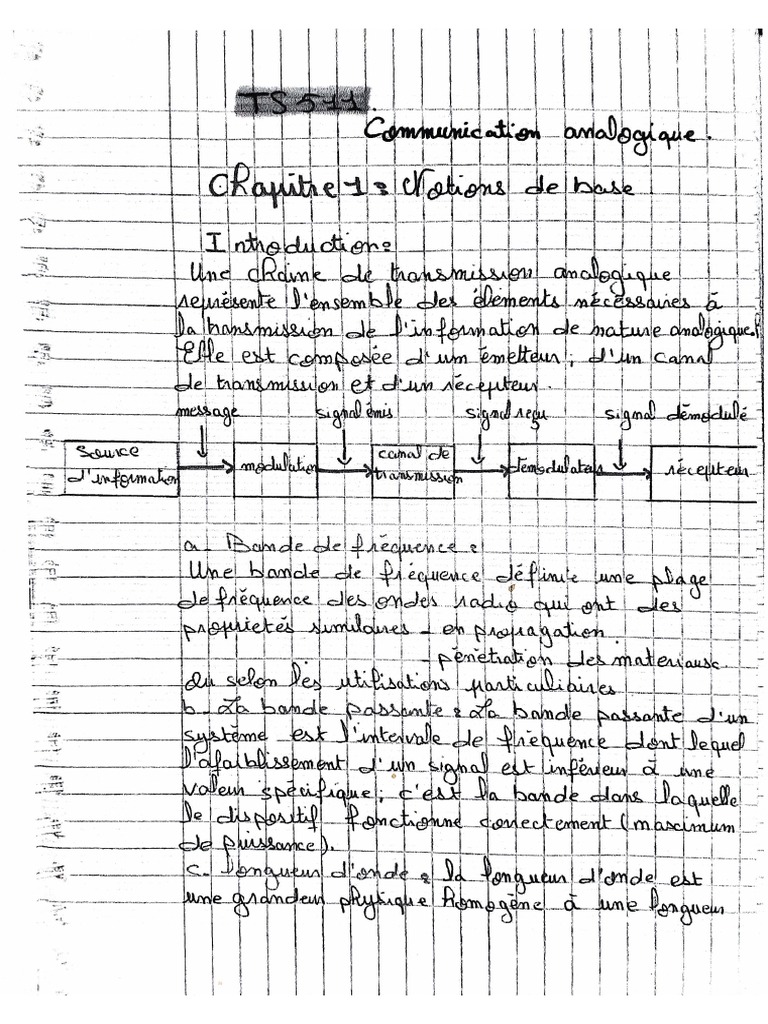 TS 511.
Communication analogique.
Chapitre 1 : Notions de base
Introduction :
Une chaine de transmission analogique
représente l'ensemble des éléments nécessaires à
la transmission de l'information de nature analogique.
Elle est composée d'un émetteur, d'un canal
de transmission et d'un récepteur.
message signal émis signal reçu signal démodulé
Source d'information
modulation
canal de transmission
démodulateur
récepteur
a. Bande de fréquence :
Une bande de fréquence définite une plage
de fréquence des ondes radio qui ont des
propriétés similaires - en propagation.
- pénétration des materiaux.
Ou selon les utilisations particuliaires
b. La bande passante : La bande passante d'un
système est l'intervale de fréquence dont lequel
l'afaiblissement d'un signal est inférieur à une
valeur spécifique, c'est la bande dans laquelle
le dispositif fonctionne correctement (maximum
de puissance).
c. longueur d'onde : la longueur d'onde est
une grandeur physique homogène à une longueur